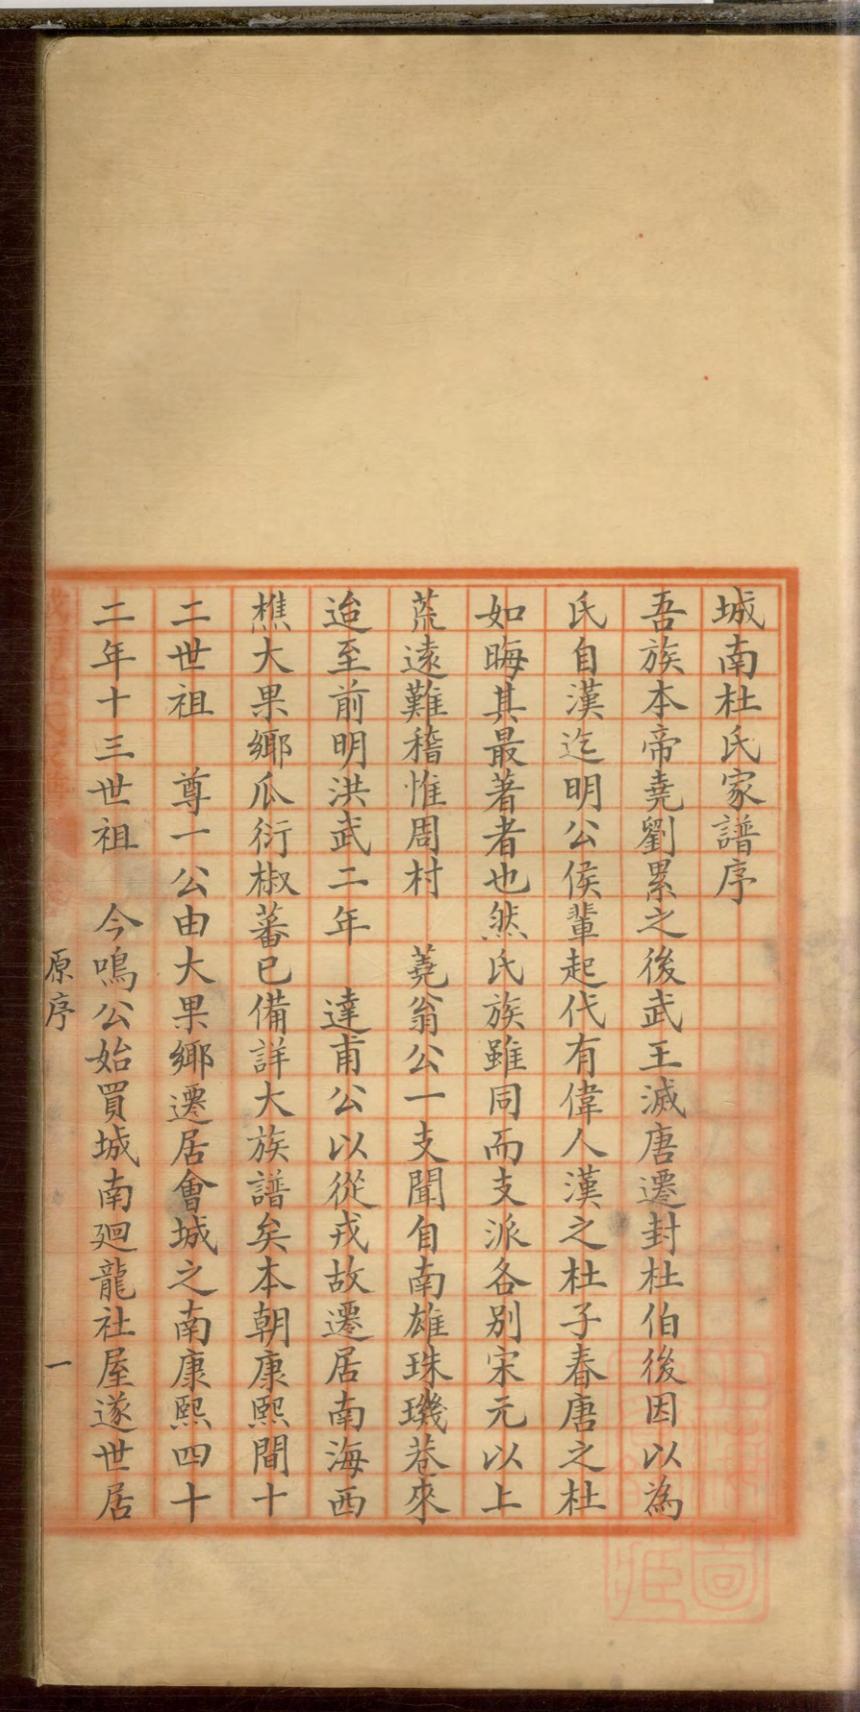 城南杜氏家譜序
吾族本帝堯劉累之後武王滅唐遷封杜伯後因以為
氏自漢迄明公侯輩起代有偉人漢之杜子春唐之杜
如晦其最著者也然氏族雖同而支派各別宋元以上
荒遠難稽惟周村　蕘翁公一支聞自南雄珠璣巷來
迨至前明洪武二年　達甫公以從戎故遷居南海西
樵大果鄉瓜衍椒蕃已備詳大族譜矣本朝康熙間十
二世祖　尊一公由大果鄉遷居會城之南康熙四十
二年十三世祖　今鳴公始買城南廻龍社屋遂世居
原序　一